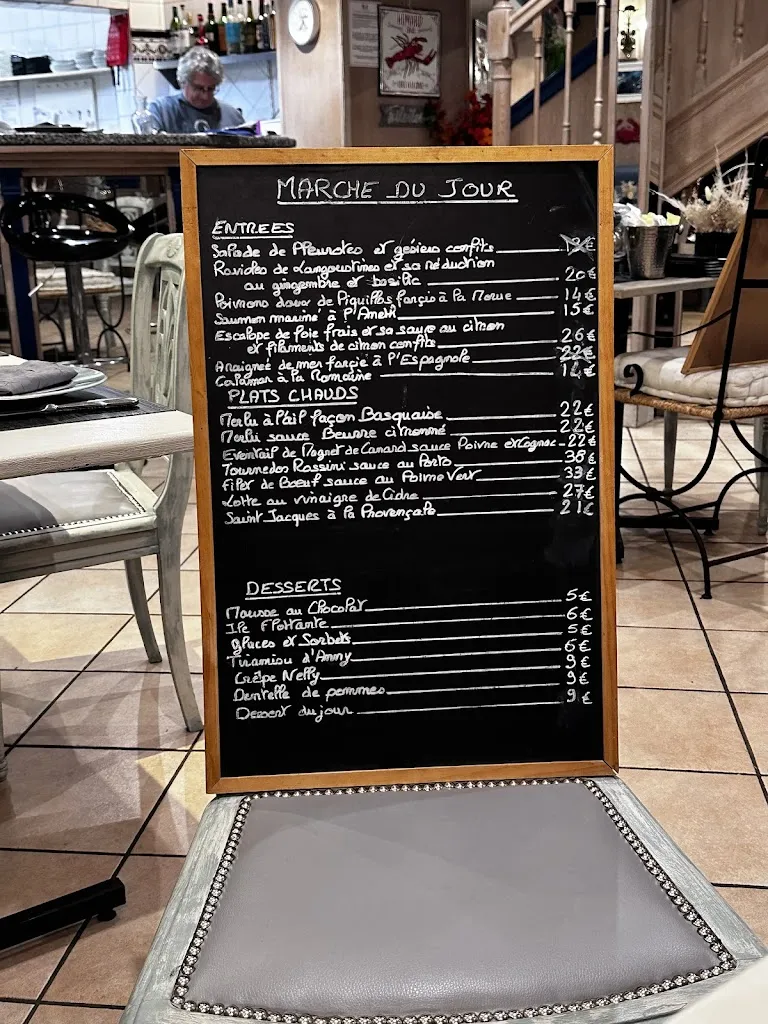 MARCHE DU JOUR
ENTREES
Salade de Pleurotes et gésiers confits 12€
Ravioles de Langoustines et sa réduction
au gingembre et basilic 20€
Poivrons doux de Piquillos farçis à la Morue 14€
Saumon mariné à l'Aneth 15€
Escalope de foie frais et sa sauce au citron
et filaments de citron confits 26€
Araignée de mer farçie à l'Espagnole 22€
Calamar à la Romaine 14€
PLATS CHAUDS
Merlu à l'ail façon Basquaise 22€
Merlu sauce Beurre citronné 22€
Eventail de Magret de Canard sauce Poivre et Cognac 22€
Tournedos Rossini sauce au Porto 38€
Filet de Bœuf sauce au Poivre Vert 33€
Lotte au vinaigre de Cidre 27€
Saint Jacques à la Provençale 21€
DESSERTS
Mousse au Chocolat 5€
Ile Flottante 6€
Glaces et Sorbets 5€
Tiramisu d'Anny 6€
Crêpe Nelly 9€
Dentelle de pommes 9€
Dessert du jour 9€